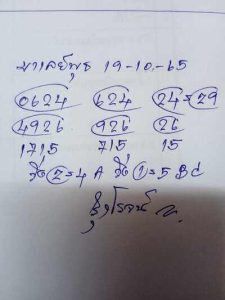 มาเลย์พุธ 19-10-65
0624 624 24=29
4926 926 26
1715 715 15
วิ่ง 2=4 A วิ่ง 1=5 Bd